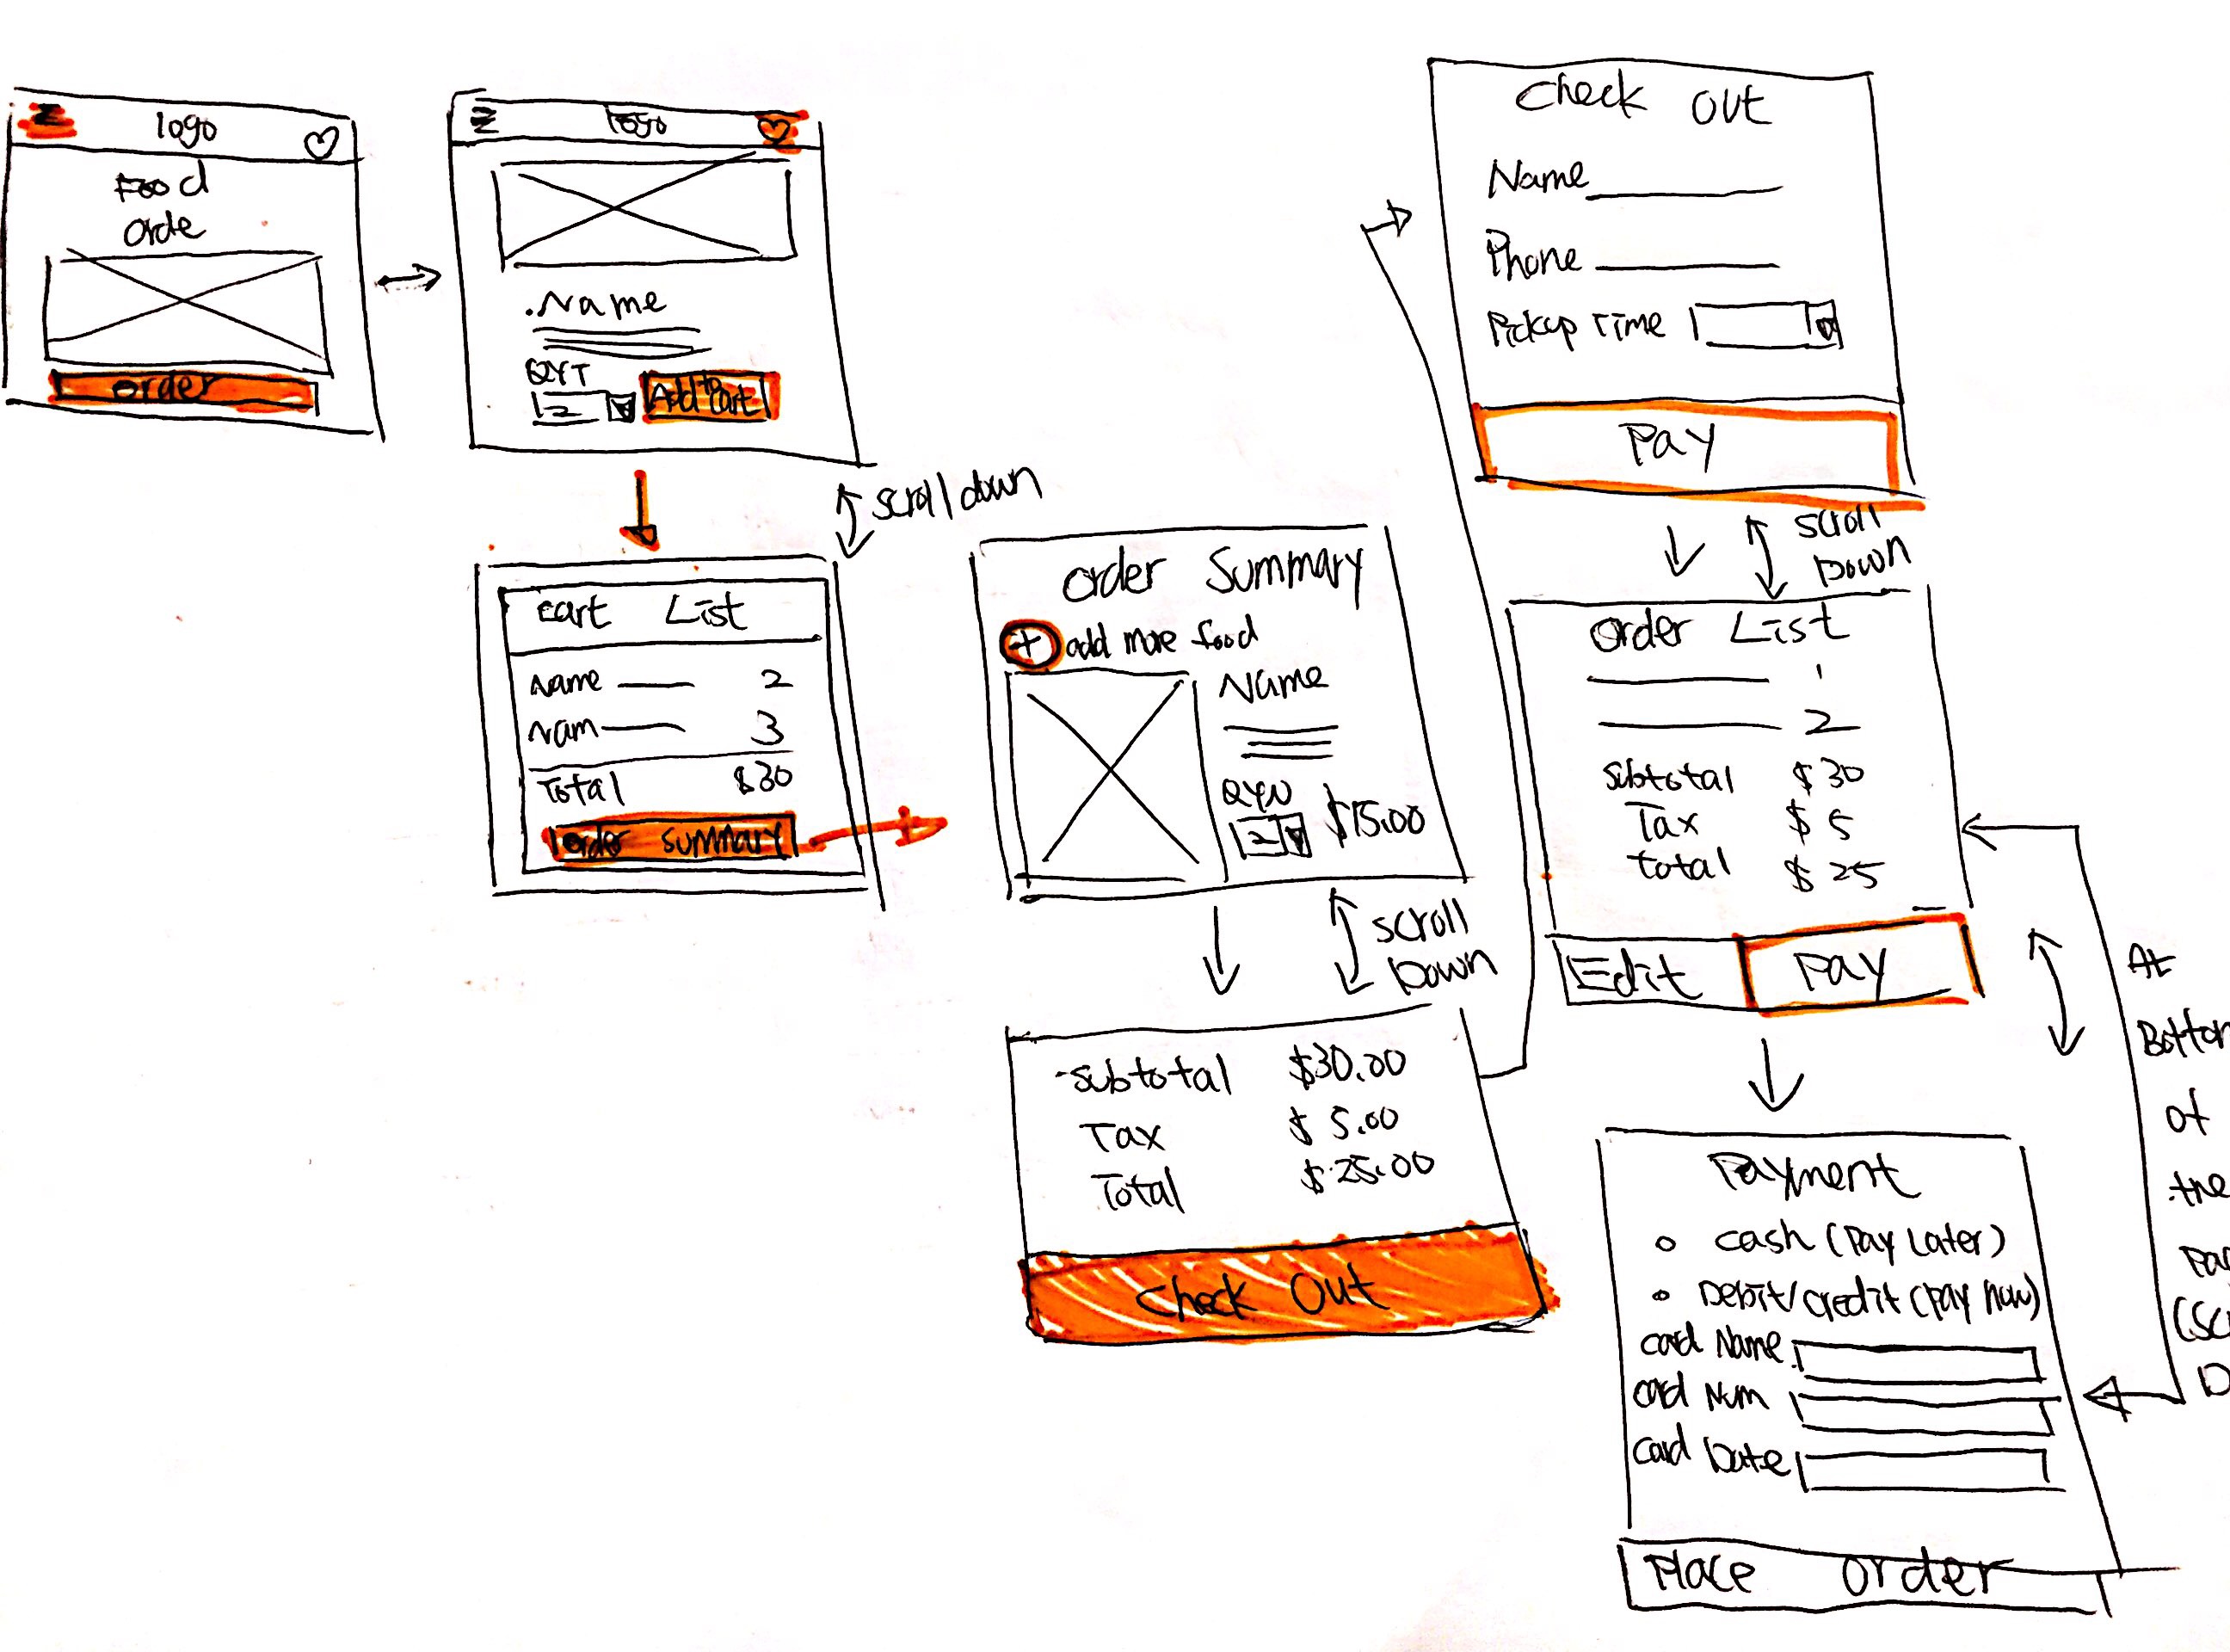 logo
Food
Orde
order
logo
.Name
QYT
2
Add to Cart
scroll down
cart List
Name 2
Nam 3
Total $30
order summary
order Summary
+ add more food
Name
QYN
2 $15.00
scroll
Down
-subtotal $30.00
Tax $ 5.00
Total $ 25.00
Check Out
Check Out
Name
Phone
Pickup Time
Pay
scroll
Down
order List
1
2
subtotal $30
Tax $ 5
total $ 25
Edit Pay
At
Bottom
of
the
Payment
cash (Pay Later)
Debit/credit (pay now)
card Name
card Num
card Date
Place order